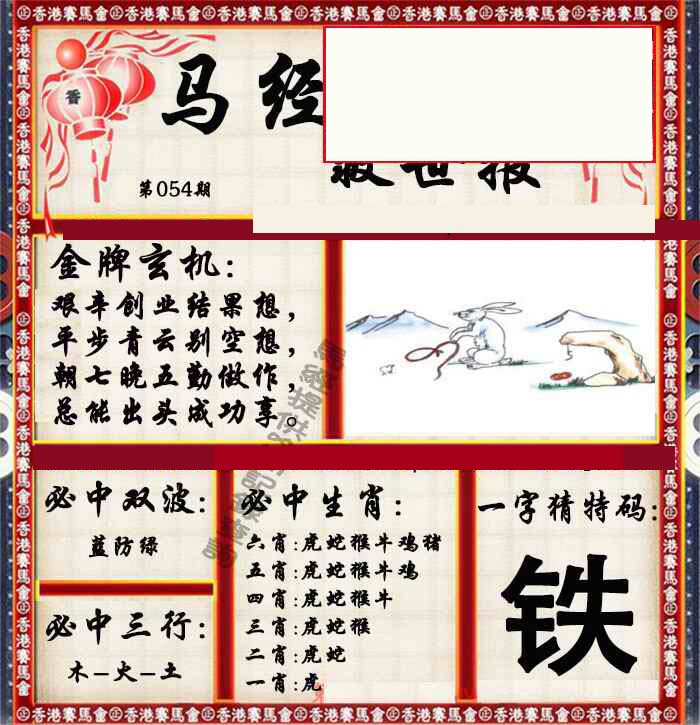 香港賽馬會
香
马经
救世报
第054期
金牌玄机:
艰辛创业结果想,
平步青云别空想,
朝七晚五勤做作,
总能出头成功享。
必中双波:
蓝防绿
必中三行:
木-火-土
必中生肖:
六肖:虎蛇猴牛鸡猪
五肖:虎蛇猴牛鸡
四肖:虎蛇猴牛
三肖:虎蛇猴
二肖:虎蛇
一肖:虎
一字猜特码:
铁